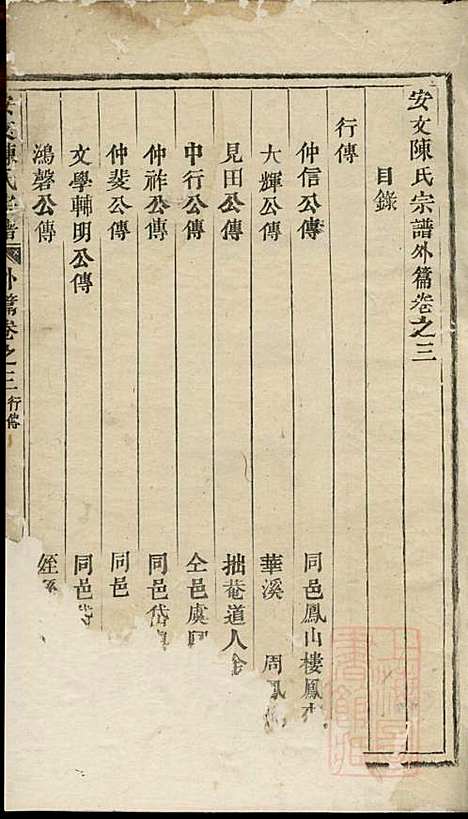 安文陳氏宗譜外篇卷之三
目錄
行傳
仲信公傳 同邑鳳山樓鳳
大輝公傳 華溪 周鳳
見田公傳 拙菴道人
中行公傳 仝邑虞
仲祚公傳 同邑岱
仲斐公傳 同邑
文學輔明公傳 同邑
鴻磬公傳 姪
安文陳氏宗譜 外篇卷之三 行傳